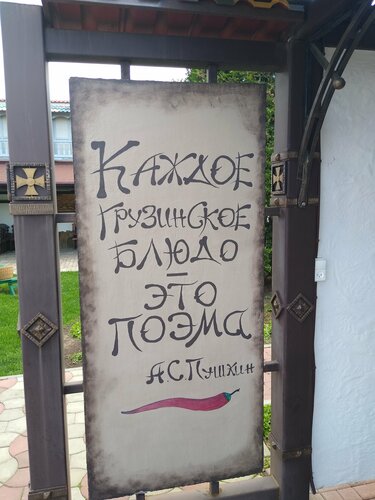 КАЖДОЕ
ГРУЗИНСКОЕ
БЛЮДО
–
ЭТО
ПОЭМА
А.С.Пушкин